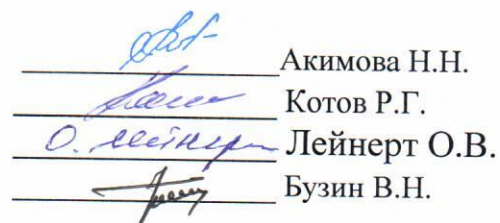 Акимова Н.Н.
Котов Р.Г.
О. Лейнерт Лейнерт О.В.
Бузин В.Н.